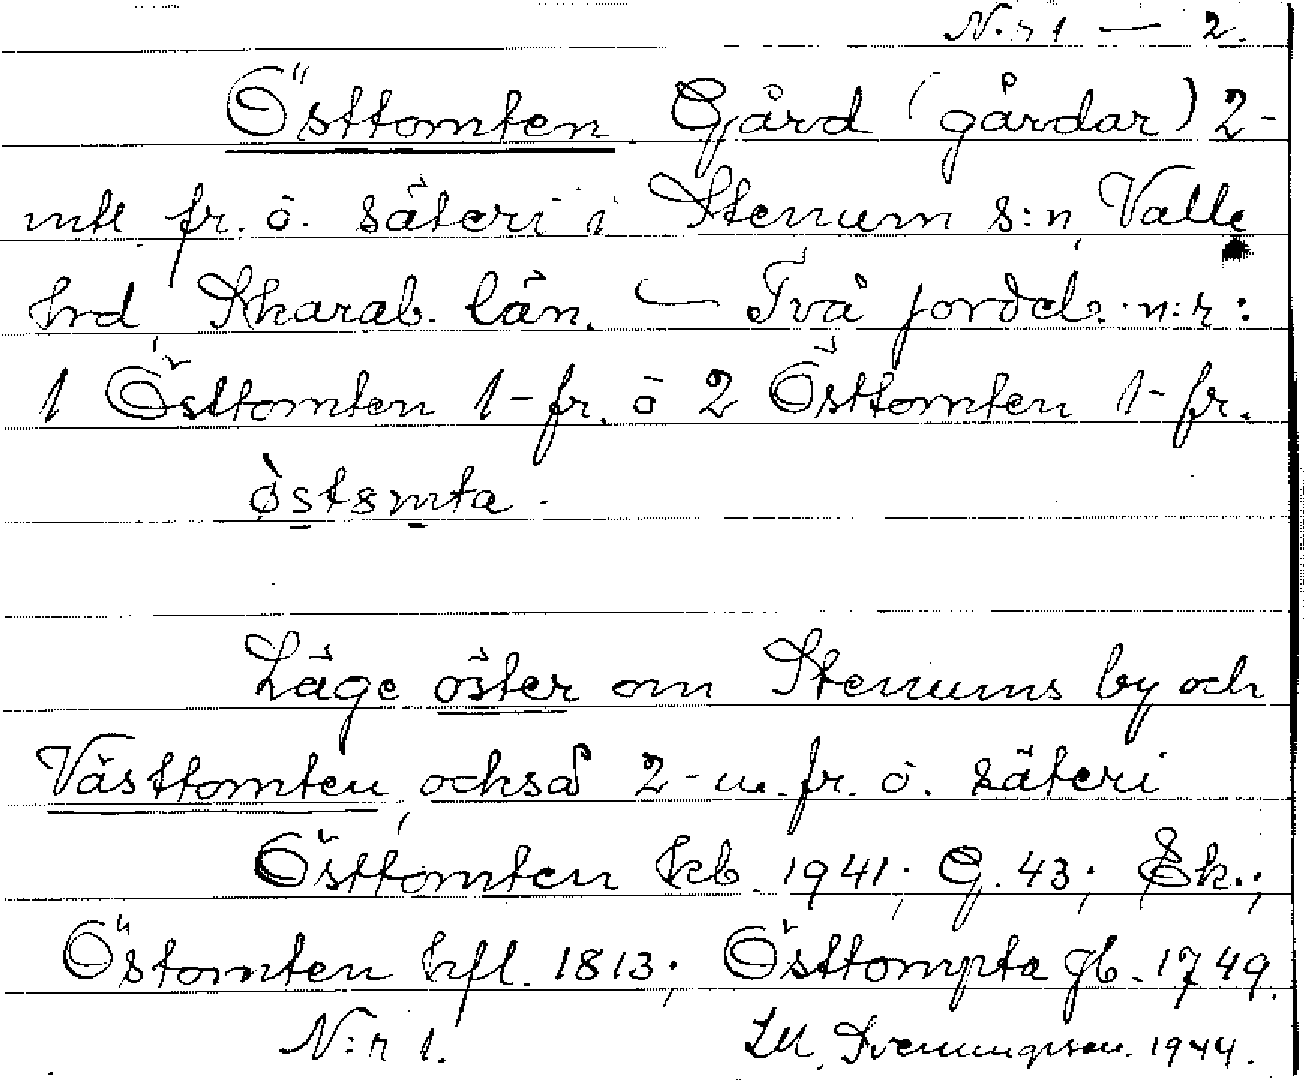 N:r 1 — 2.
Östtomten Gård (gårdar) 2-
mtl fr. o. säteri i Stenum s:n Valle
hrd Skarab. län. — Två jordels. n:r:
1 Östtomten 1-fr. o 2 Östtomten 1-fr.
östsmta.
Läge öster om Stenums by och
Västtomten, också 2-m. fr. o. säteri
Östtomten kb. 1941; G. 43; Ek.;
Östomten hfl. 1813; Östtompta jb. 1749.
N:r 1. Lll. Svenungsson. 1944.